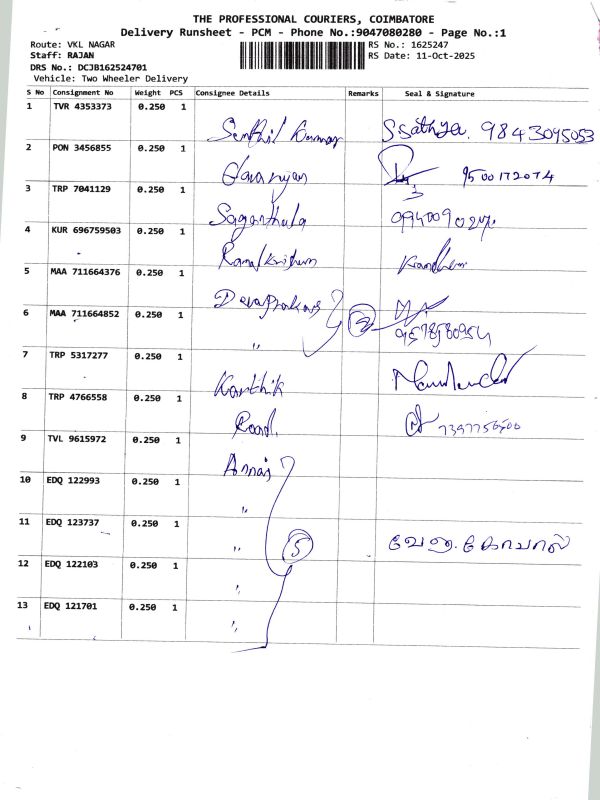 THE PROFESSIONAL COURIERS, COIMBATORE
Delivery Runsheet - PCM - Phone No.:9047080280 - Page No.:1
Route: VKL NAGAR
RS No.: 1625247
Staff: RAJAN
RS Date: 11-Oct-2025
DRS No.: DCJB162524701
Vehicle: Two Wheeler Delivery
S No Consignment No Weight PCS Consignee Details Remarks Seal & Signature
1 TVR 4353373 0.250 1 Senthil Kumar Ssathya. 9843095053
2 PON 3456855 0.250 1 9500172074
3 TRP 7041129 0.250 1
4 KUR 696759503 0.250 1
5 MAA 711664376 0.250 1 Devaprakas
6 MAA 711664852 0.250 1 " 2
7 TRP 5317277 0.250 1 Karthik
8 TRP 4766558 0.250 1 Road.
9 TVL 9615972 0.250 1 Annai
10 EDQ 122993 0.250 1 "
11 EDQ 123737 0.250 1 " 5 வேணு.கோபால்
12 EDQ 122103 0.250 1 "
13 EDQ 121701 0.250 1 "